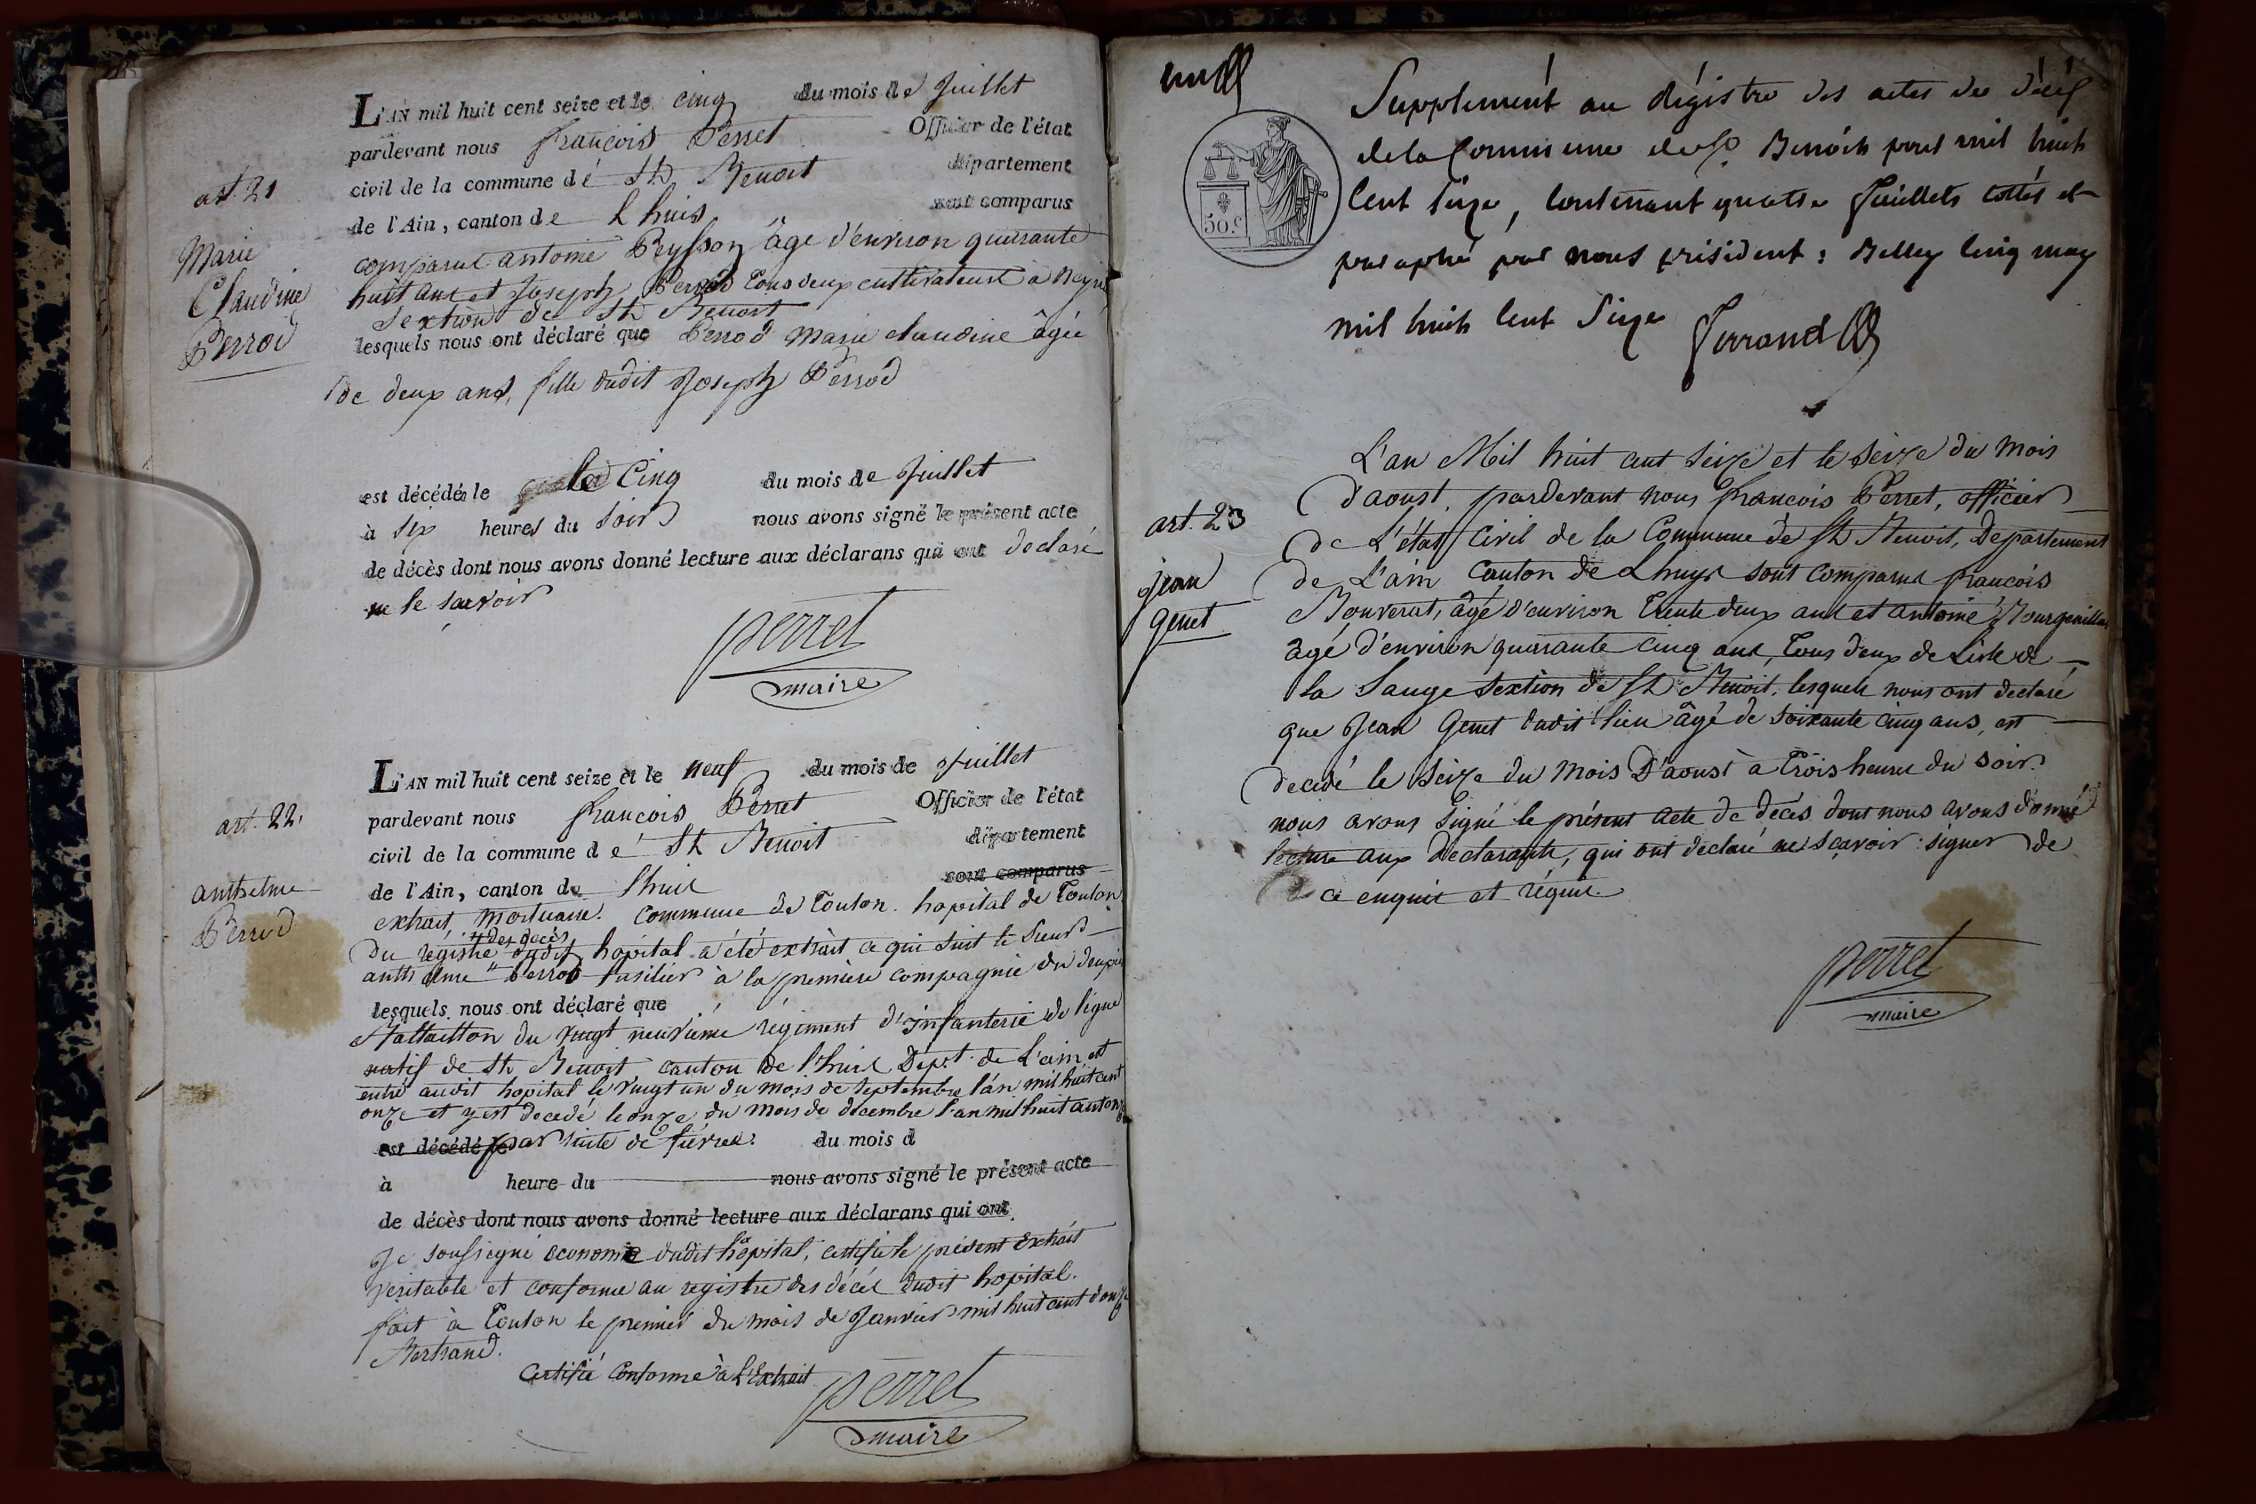 art. 21
Marie
Claudine
Perrod
L'AN mil huit cent seize et le cinq du mois de Juillet
pardevant nous françois Perret Officier de l'état
civil de la commune de St Benoit département
de l'Ain, canton de Lhuis sont comparus
comparut antoine Peysson âgé d'environ quarante
huit ans et Joseph Perrod tous deux cultivateurs à
Sextion de St Benoit
lesquels nous ont déclaré que Perrod Marie claudine âgée
de deux ans, fille dudit Joseph Perrod
est décédée le le cinq du mois de Juillet
à six heures du soir nous avons signé le présent acte
de décès dont nous avons donné lecture aux déclarans qui ont declaré
ne le savoir
perret
maire
art. 22.
anthelme
Perrod
L'AN mil huit cent seize et le neuf du mois de Juillet
pardevant nous françois Perret Officier de l'état
civil de la commune de St Benoit département
de l'Ain, canton de Lhuis sont comparus
extrait mortuaire. Commune de Toulon. hopital de Toulon.
des décès
Du régistre dudit hopital a été extrait ce qui suit le Sieur
anthelme Perrod fusilier à la première compagnie du deuxie
lesquels nous ont déclaré que
Battaillon du vingt neuvieme régiment d'infanterie de ligne
natif de St Benoit canton de Lhuis Dépt. de L'ain est
entré audit hopital le vingt un du mois de septembre l'an mil huit cent
onze et y est decedé le onze du mois de decembre l'an mil huit cent onze
est décédé le par suite de fièvres. du mois d
à heure du nous avons signé le présent acte
de décès dont nous avons donné lecture aux déclarans qui ont
Je soussigné econome dudit hôpital, certifie le présent extrait
veritable et conforme au registre des décès dudit hopital.
fait à Toulon le premier du mois de Janvier mil huit cent douze
Bertrand.
Certifié conforme à L'extrait
perret
maire
50.c
Supplément au régistre des actes de décès
de la Commune de St Benoît pour mil huit
Cent seize, contenant quatre feuillets cottés et
paraphé par nous président : Belley cinq may
mil huit cent Seize Ferrand
art. 23
Jean
genet
L'an Mil huit cent seize et le seize du mois
d'aoust, pardevant nous françois Perret, officier
de L'état Civil de la Commune de St Benoit, Departement
de L'ain Canton de Lhuys sont comparus françois
Bouverat, âgé d'environ trente deux ans et antoine
agé d'environ quarante cinq ans, tous deux de Lisle de
la Sauge Sextion de St Benoit, lesquels nous ont declaré
que Jean Genet dudit lieu âgé de soixante cinq ans, est
decedé le seize du mois D'aoust à trois heures du soir.
nous avons signé le présent acte de décès dont nous avons donné
lecture aux declarants, qui ont declaré ne sçavoir signer de
ce enquis et réquis.
perret
maire